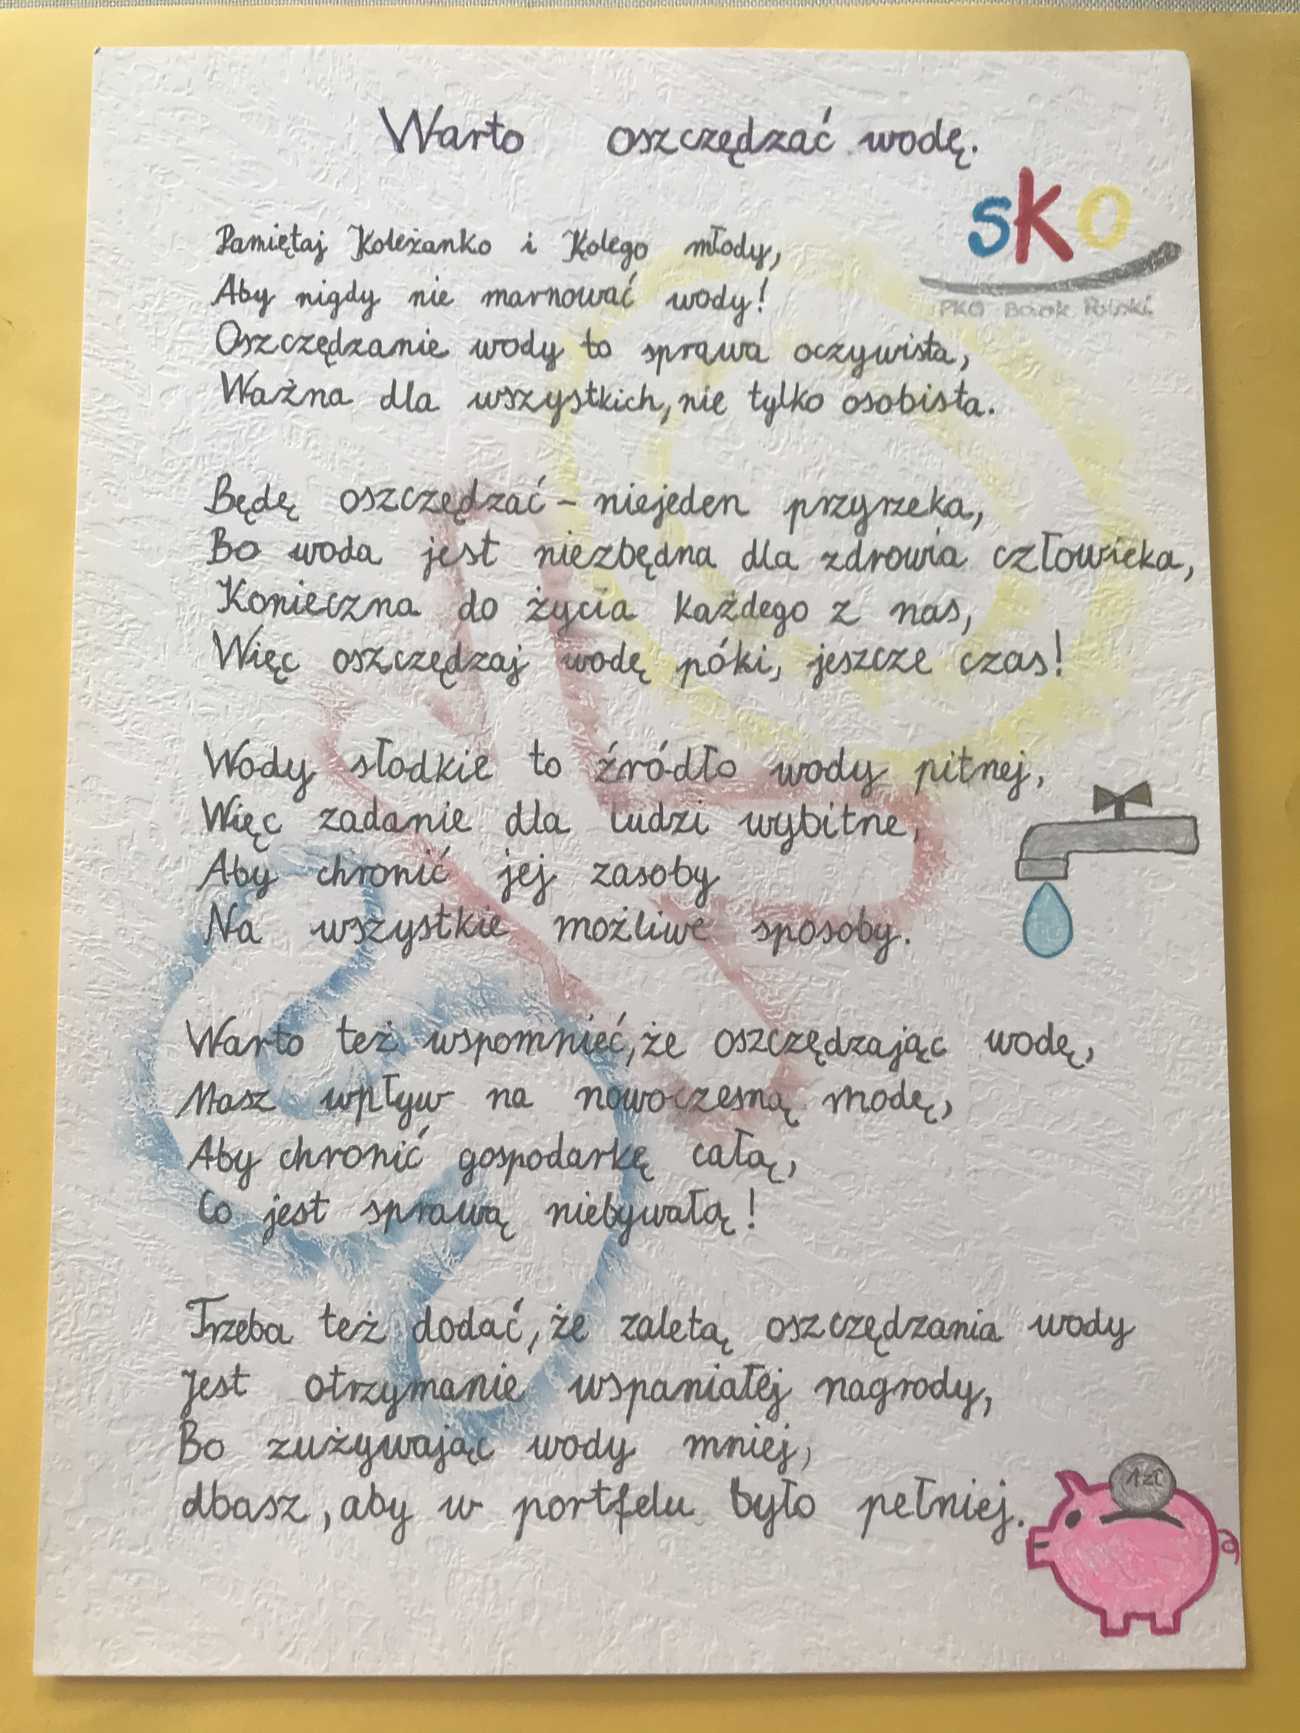 Warto oszczędzać wodę.
SKO
PKO Bank Polski
Pamiętaj Koleżanko i Kolego młody,
Aby nigdy nie marnować wody!
Oszczędzanie wody to sprawa oczywista,
Ważna dla wszystkich, nie tylko osobista.
Będę oszczędzać - niejeden przyrzeka,
Bo woda jest niezbędna dla zdrowia człowieka,
Konieczna do życia każdego z nas,
Więc oszczędzaj wodę póki, jeszcze czas!
Wody słodkie to źródło wody pitnej,
Więc zadanie dla ludzi wybitne,
Aby chronić jej zasoby
Na wszystkie możliwe sposoby.
Warto też wspomnieć, że oszczędzając wodę,
Masz wpływ na nowoczesną modę,
Aby chronić gospodarkę całą,
Co jest sprawą niebywałą!
Trzeba też dodać, że zaletą oszczędzania wody
Jest otrzymanie wspaniałej nagrody,
Bo zużywając wody mniej,
dbasz, aby w portfelu było pełniej.
1 zł